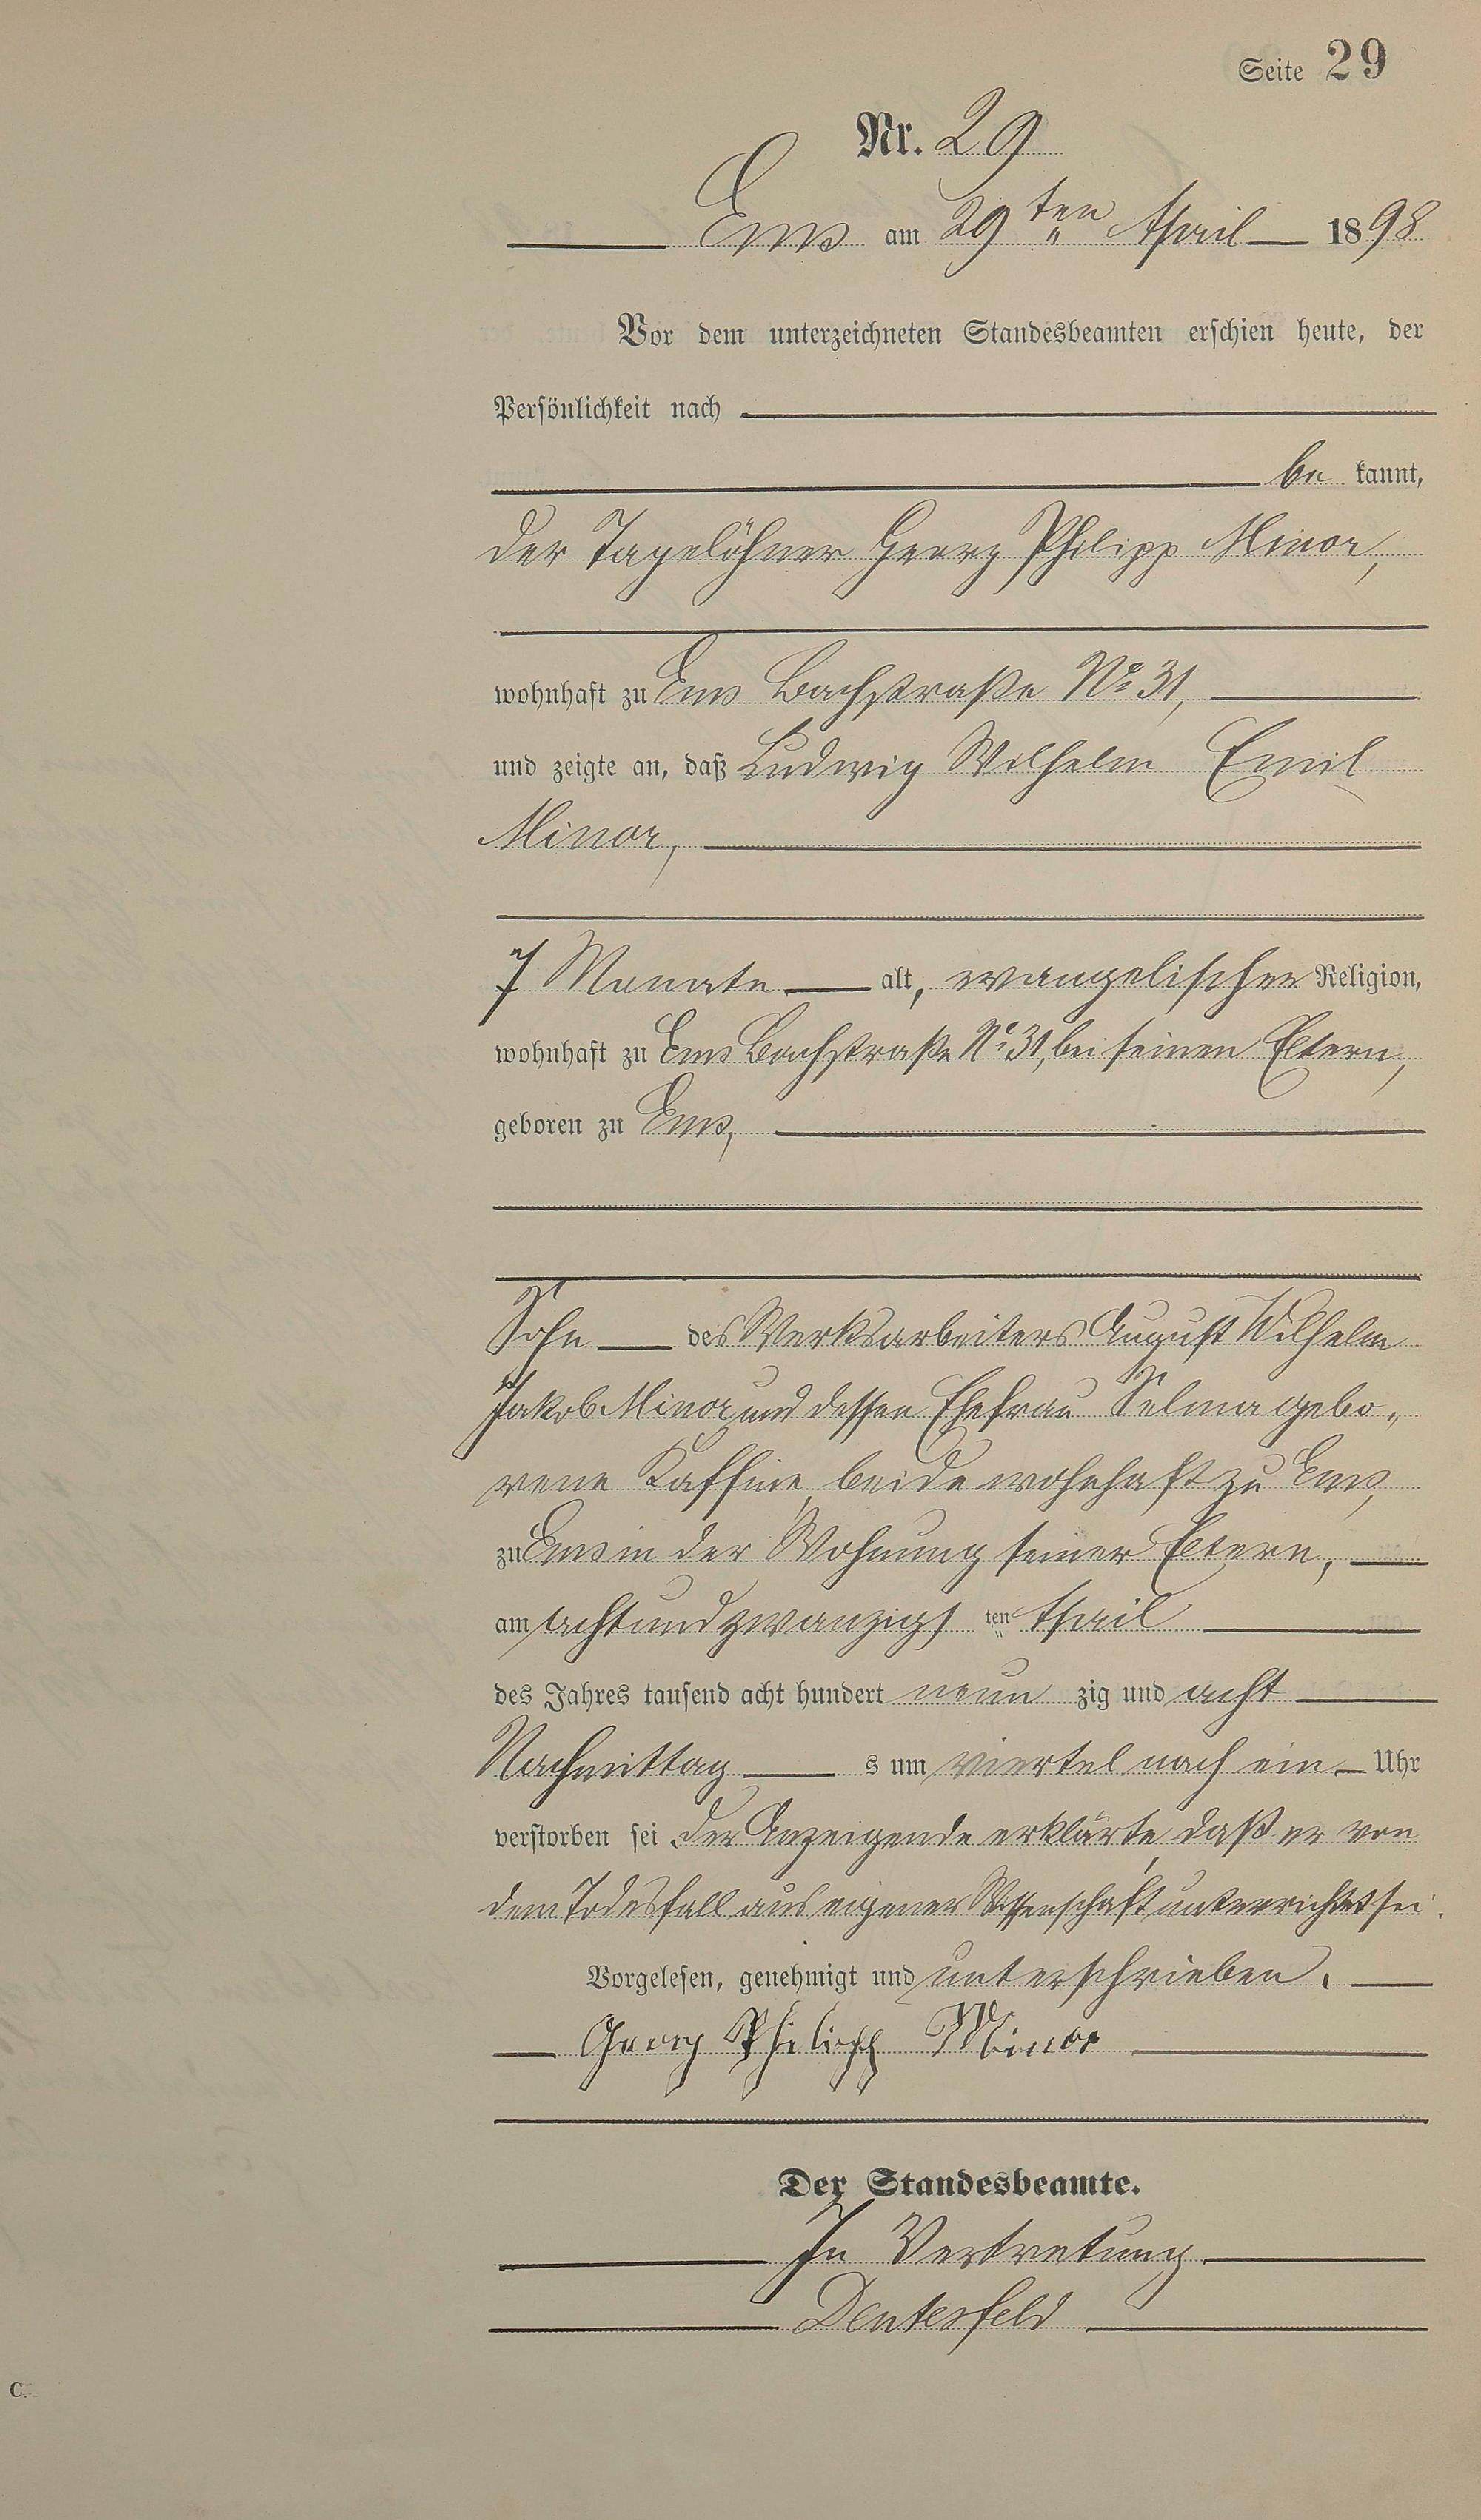 Seite 29
Nr. 29
Ems am 29ten April 1898
Vor dem unterzeichneten Standesbeamten erschien heute, der
Persönlichkeit nach
be kannt,
der Tagelöhner Georg Philipp Minor,
wohnhaft zu Ems Bachstraße No 31,
und zeigte an, daß Ludwig Wilhelm Emil
Minor,
7 Monate alt, evangelischer Religion,
wohnhaft zu Ems Bachstraße No 31, bei seinen Eltern,
geboren zu Ems,
Sohn des Werksarbeiters August Wilhelm
Jakob Minor und dessen Ehefrau Selma gebo„
rene Kaffine, beide wohnhaft zu Ems,
zu Ems in der Wohnung seiner Eltern,
am achtundzwanzigs ten April
des Jahres tausend acht hundert neun zig und acht
Nachmittag s um viertel nach ein Uhr
verstorben sei. Der Anzeigende erklärte, daß er von
dem Todesfall aus eigener Wissenschaft unterrichtet sei.
Vorgelesen, genehmigt und unterschrieben.
Georg Philipp Minor
Der Standesbeamte.
In Vertretung
Deutesfeld
C.